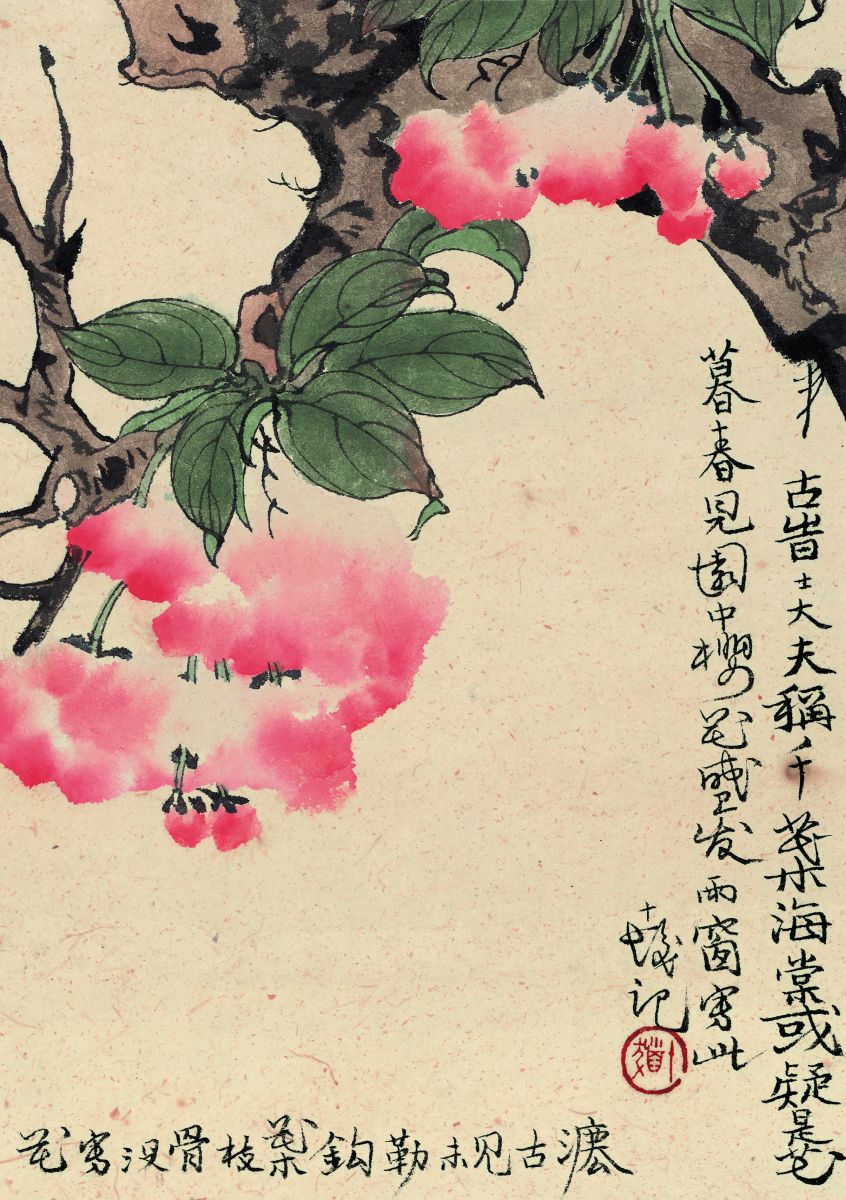 古昔士大夫稱千葉海棠或疑是花
暮春見園中櫻花盛发雨窗寫此
十記
花寫没骨枝葉鈎勒未見古